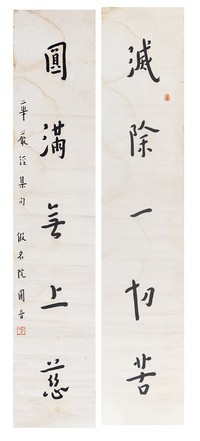 滅除一切苦
圓滿無上慈
華嚴經集句 假名院圓音